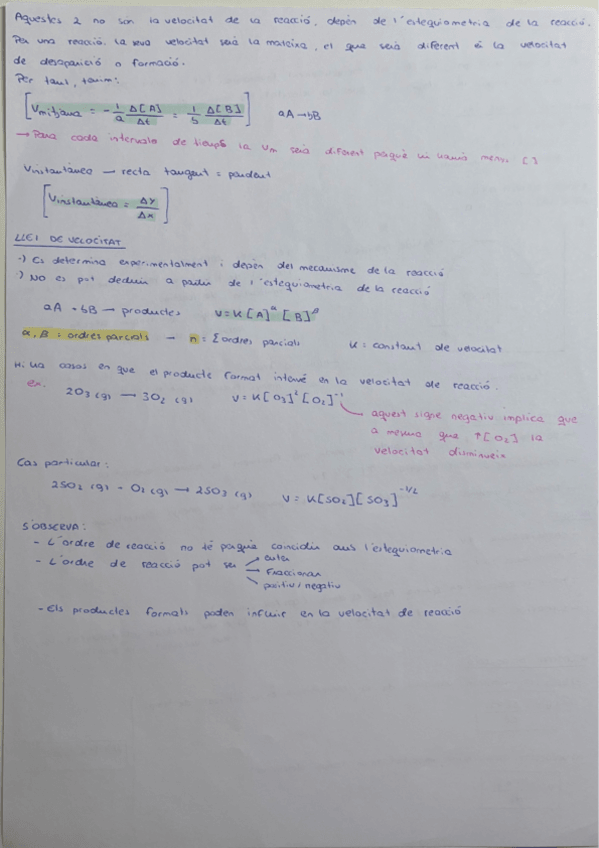 Aquestes 2 no són la velocitat de la reacció, depèn de l'estequiometria de la reacció.
Per una reacció la seva velocitat serà la mateixa, el que serà diferent és la velocitat
de desaparició o formació.
Per tant, tenim:
[Vmitjana = -1/a Δ[A]/Δt = 1/b Δ[B]/Δt] aA→bB
→ Para cada intervalo de tiempo la Vm serà diferent perquè hi haurà menys [ ]
Vinstantànea → recta tangent = pendent
[Vinstantànea = Δy/Δx]
LLEI DE VELOCITAT
·) Es determina experimentalment i depèn del mecanisme de la reacció
·) No es pot deduir a partir de l'estequiometria de la reacció
aA + bB → productes V = K[A]^α [B]^β
α, β = ordres parcials → n = Σ ordres parcials K = constant de velocitat
Hi ha casos en que el producte format intervé en la velocitat de reacció.
ex. 2O₃ (g) → 3O₂ (g) V = K[O₃]² [O₂]⁻¹
aquest signe negatiu implica que
a mesura que ↑[O₂] la
velocitat disminueix
Cas particular:
2SO₂ (g) - O₂ (g) → 2SO₃ (g) V = K[SO₂][SO₃]^-1/2
S'OBSERVA:
- L'ordre de reacció no té perquè coincidir amb l'estequiometria
- L'ordre de reacció pot ser enter
fraccionari
positiu/negatiu
- Els productes formats poden influir en la velocitat de reacció